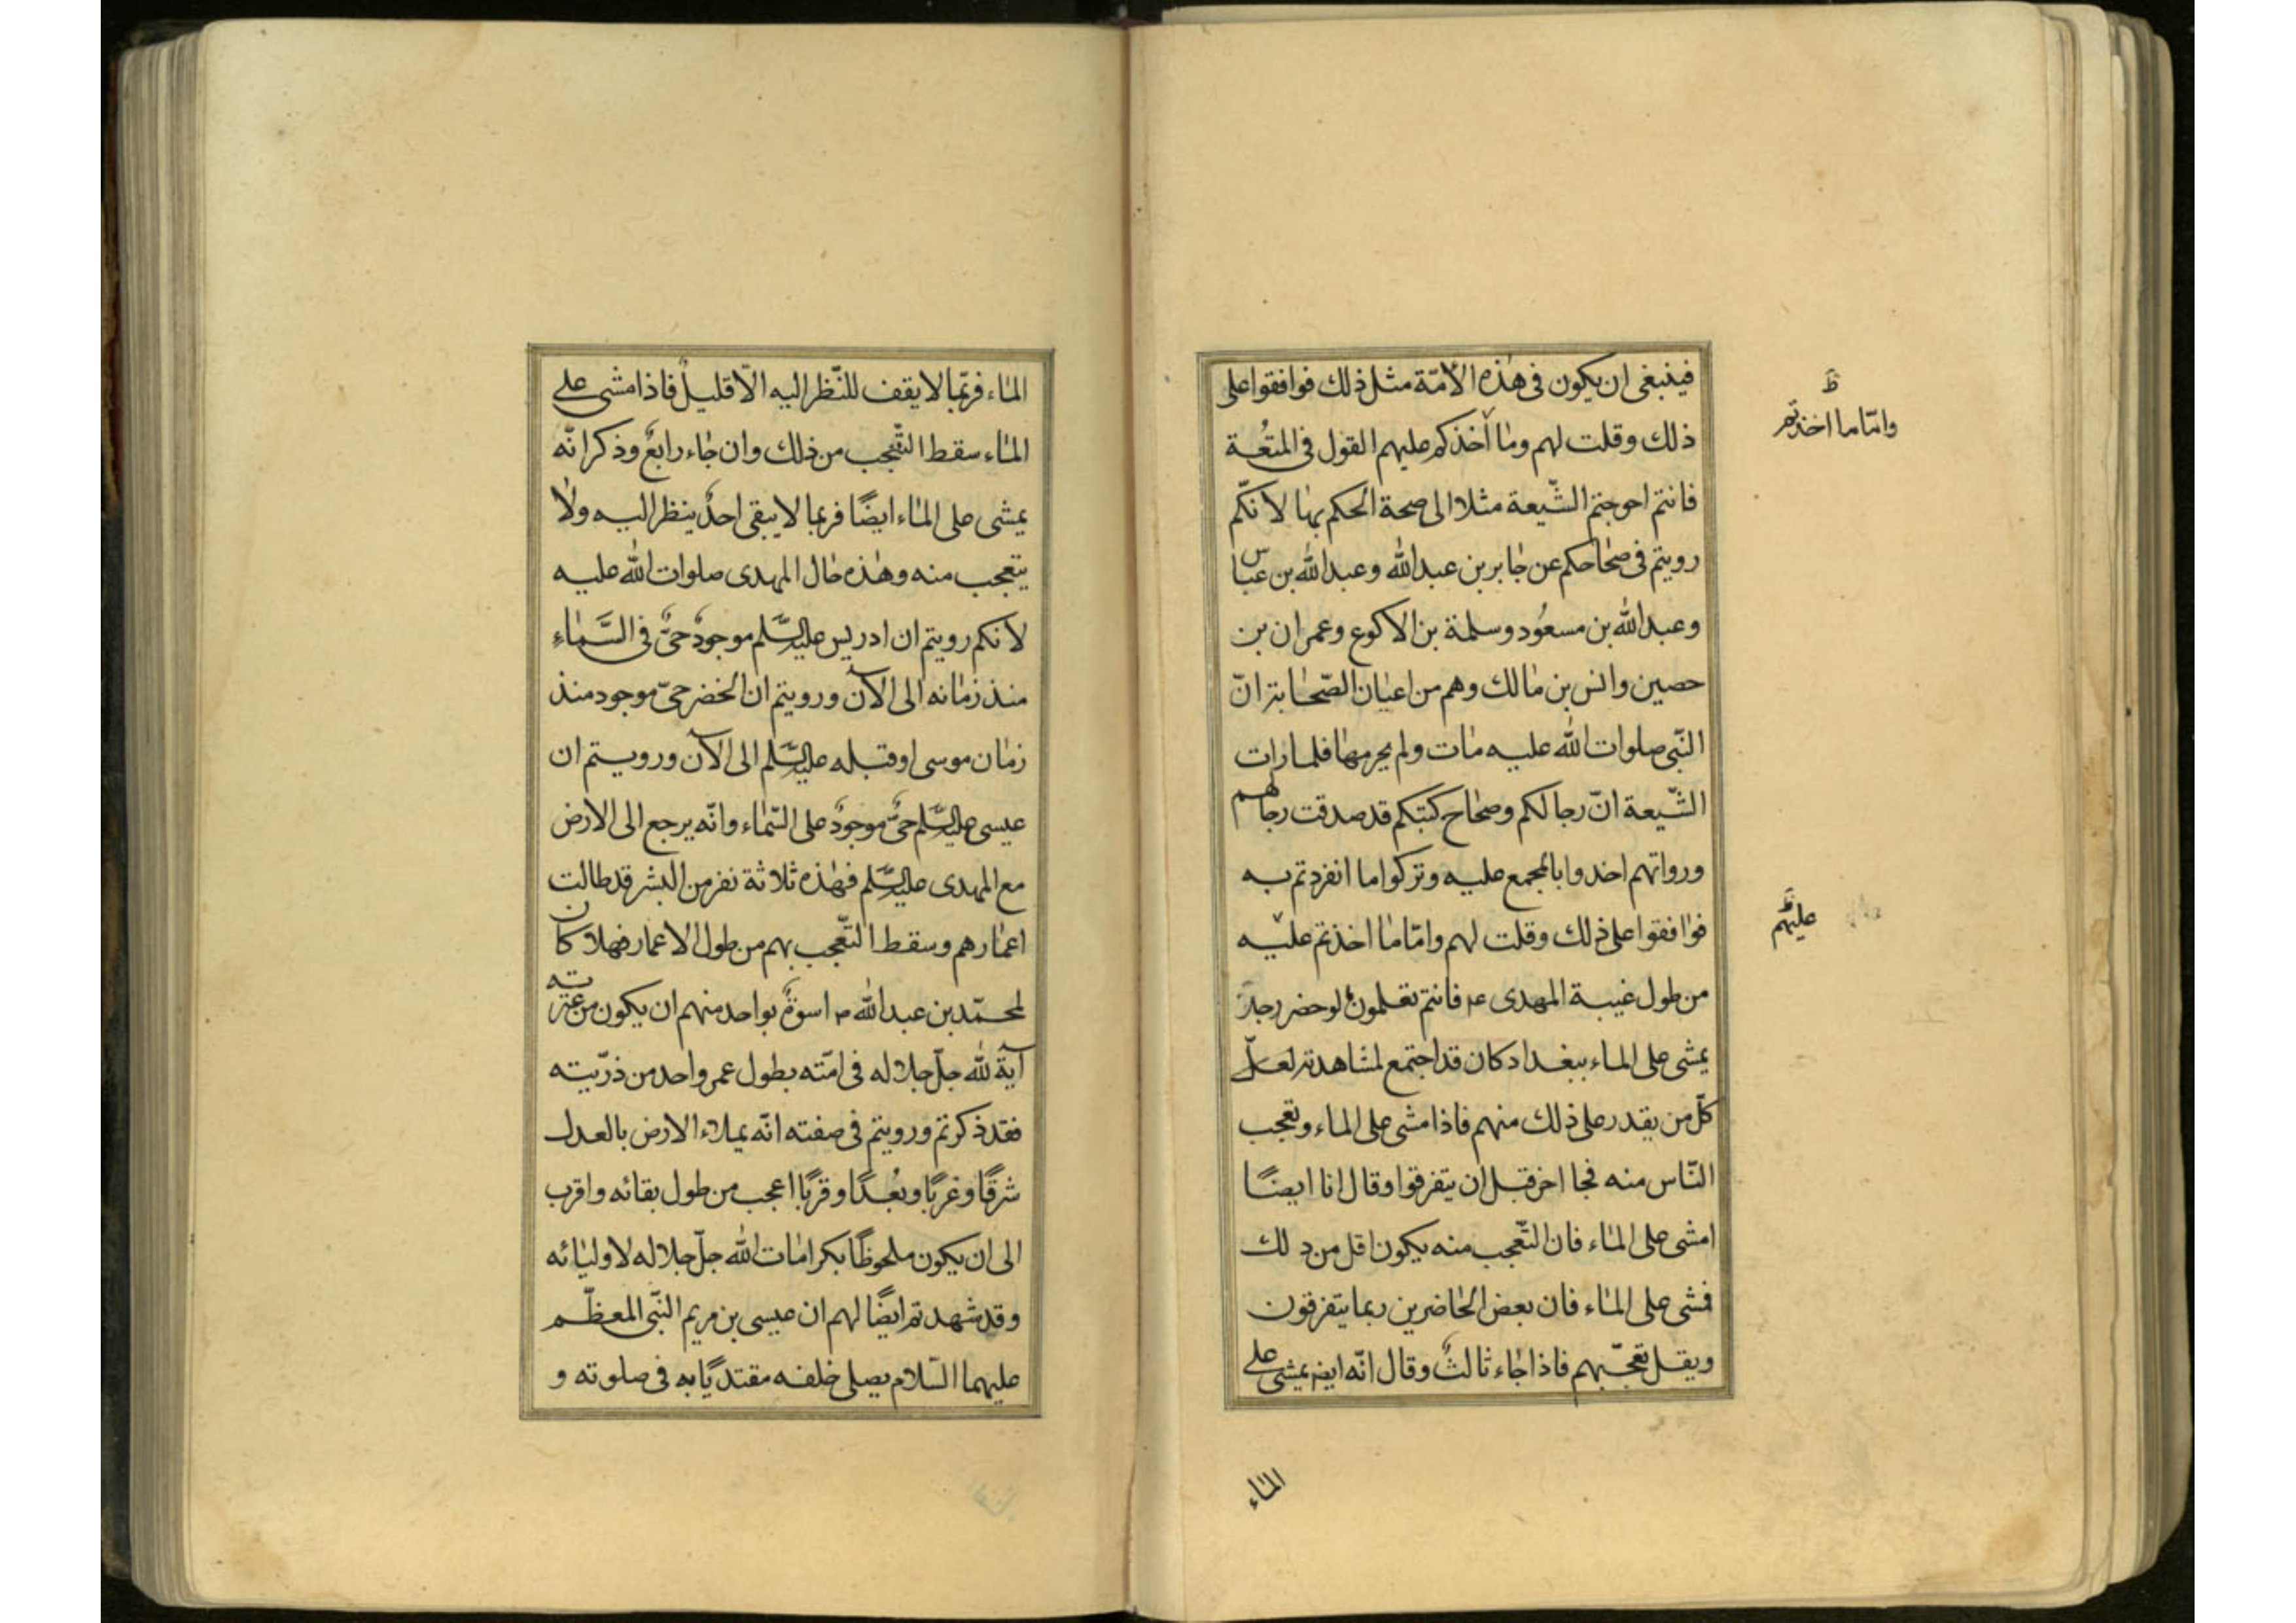 فينبغى ان يكون فى هذه الأمّة مثل ذلك فوافقوا على
ذلك وقلت لهم وما أخذكم عليهم القول فى المتعُة
فانتم احوجتم الشّيعة مثلا الى صحة الحكم بها لانّكم
رويتم فى صحاحكم عن جابر بن عبد الله وعبد الله بن عباس
وعبد الله بن مسعُود وسلمة بن الاكوع وعمران بن
حصين وانس بن مالك وهم من اعيان الصّحابة انّ
النّبى صلوات الله عليه مات ولم يحرمها فلما رات
الشّيعة انّ رجالكم وصحاح كتبكم قد صدقت رجالهم
ورواتهم اخدوا بالمجمع عليه وتركوا ما انفردتم به
فوافقوا على ذلك وقلت لهم وامّا ما اخذتم عليه
من طول غيبة المهدى ع فانتم تعلمون لو حضر رجل
يمشى على الماء ببغداد كان قد اجتمع لمشاهدته لعلّ
كلّ من يقدر على ذلك منهم فاذا مشى على الماء وتعجب
النّاس منه فجا اخر قبل ان يتفرقوا وقال انا ايضًا
امشى على الماء فان التّعجب منه يكون اقل من دلك
فمشى على الماء فان بعض الحاضرين ربما يتفرقون
ويقل تعجّبهم فاذا جاء ثالثٌ وقال انّه ايضا يمشى على
وامّا ما اخذتم
عليهم
الماء
الماء فربّما لا يقف للنّظر اليه الّا قليلٌ فاذا مشى على
الماء سقط التّعجب من ذلك وان جاء رابعٌ وذكر انّه
يمشى على الماء ايضًا فربما لا يبقى احدٌ ينظر اليه ولا
يتعجب منه وهذه حال المهدى صلوات الله عليه
لانكم رويتم ان ادريس عليه السَّلم موجودٌ حىٌّ فى السَّماءِ
منذ زمانه الى الآن ورويتم ان الخضر حىّ موجود منذ
زمان موسى او قبله عليه السَّلم الى الآن ورويتم ان
عيسى عليه السَّلم حىٌّ موجودٌ على السّماء وانّه يرجع الى الارض
مع المهدى عليه السَّلم فهذه ثلاثة نفر من البشر قد طالت
اعمارهم وسقط التّعجب بهم من طول الاعمار فهلا كان
لمحمّد بن عبد الله ص اسوةٌ بواحد منهم ان يكون من عترته
آية لله جلّ جلاله فى امّته بطول عمر واحد من ذرّيته
فقد ذكرتم ورويتم فى صفته انّه يملاء الارض بالعدل
شرقًا وغربًا وبُعدًا وقربًا اعجب من طول بقائه واقرب
الى ان يكون ملحوظًا بكرامات الله جلّ جلاله لاوليائه
وقد شهدتم ايضًا لهم ان عيسى بن مريم النّبى المعظّم
عليهما السّلام يصلى خلفه مقتديًا به فى صلوته و